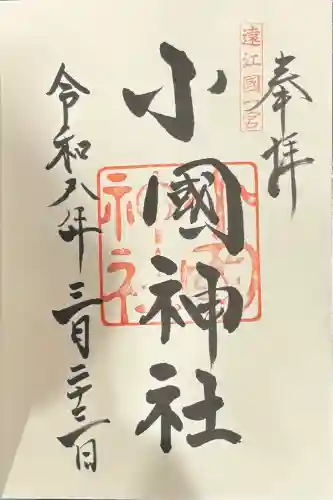 奉拝
遠江國一宮
小國神社
小國神社
令和八年三月二十二日